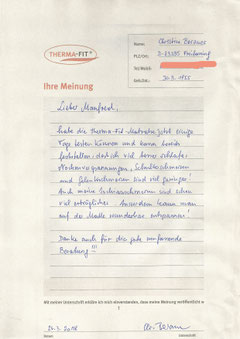 THERMA-FIT®
Name: Christine
PLZ/Ort:
Tel./Mobil:
Geb.Dat.: 30.3.1955
Ihre Meinung
Lieber Manfred,
habe die Therma-Fit Matratze jetzt einige
Tage testen können und kann bereits
feststellen, dass ich viel besser schlafe.
Nackenverspannungen, Schulterschmerzen
und Gelenkschmerzen sind viel geringer!
Auch meine sind schon
viel erträglicher. Ausserdem kann man
auf der Matte wunderbar entspannen!
Danke auch für die gute umfassende
Beratung !!!
Mit meiner Unterschrift erkläre ich mich einverstanden, dass meine Meinung veröffentlicht w
24.3.2018